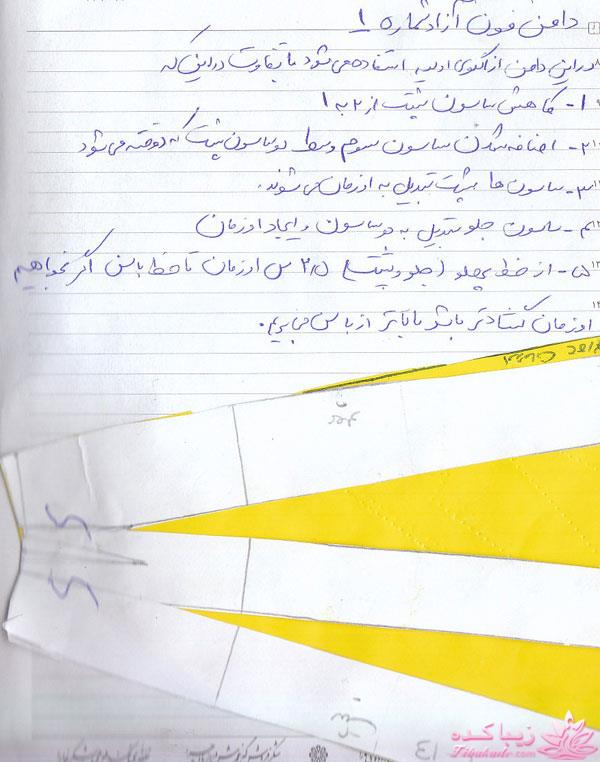 دامن فون آزاد شماره 1
در این دامن از الگوی اولیه استفاده می شود با تفاوت در این که
1- کاهش ساسون پشت از 2 به 1
2- اضافه شدن ساسون سوم وسط دو ساسون پشت که دوخته می شود
3- ساسون ها پشت تبدیل به اوزمان می شوند.
4- ساسون جلو تبدیل به دو ساسون و ایجاد اوزمان
5- از خط پهلو (جلو و پشت) 2/5 س اوزمان تا خط باسن اگر بخواهیم
اوزمان گشادتر باشد بالاتر از باسن می بریم.
اوزمان
س
س
13
زیباکده
Zibakade.com